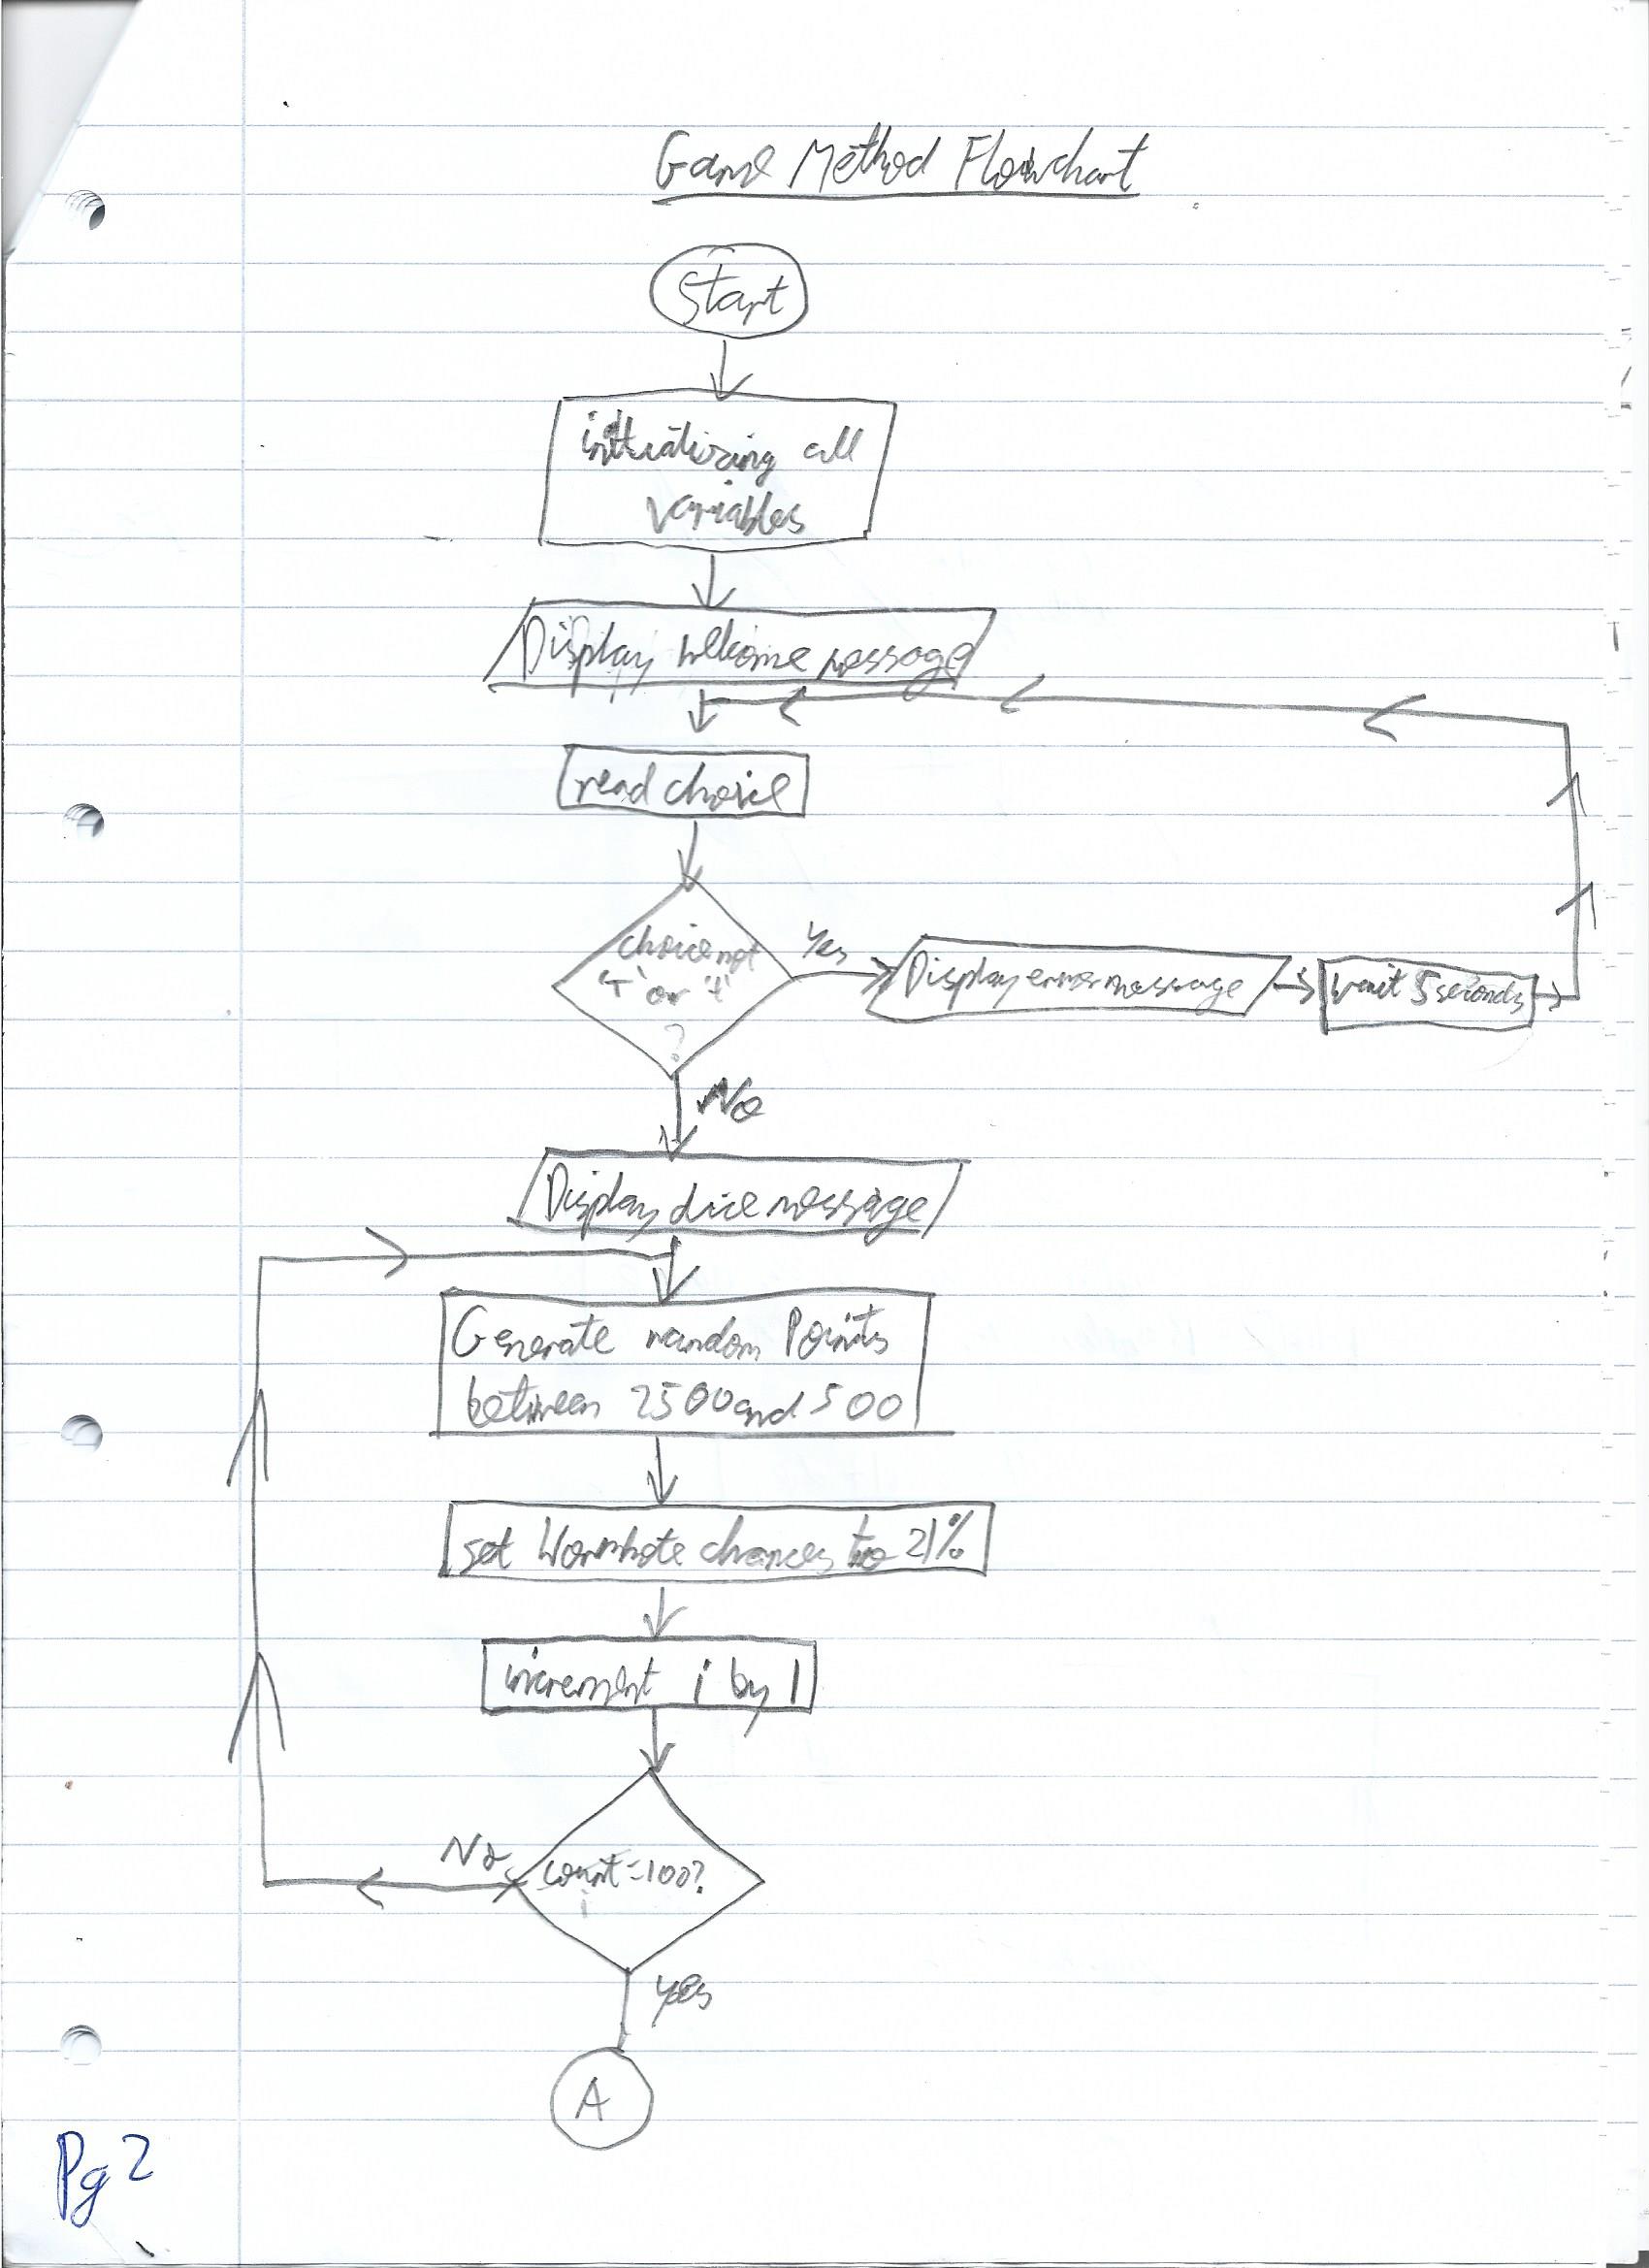 Game Method Flowchart
Start
initializing all
variables
Display welcome message
read choice
choice not
'T' or 't'
?
Yes
Display error message
wait 5 seconds
No
Display dice message
Generate random Points
between 2500 and 500
set Wormhole chances to 21%
increment i by 1
No
count=100?
i
yes
A
Pg 2